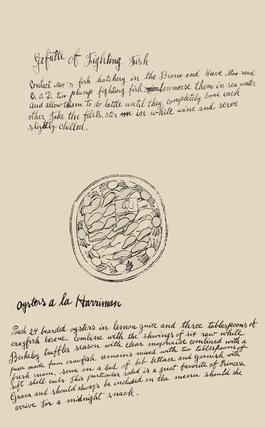 Gefüllte of Fighting Fish
Contact Max's fish hatchery in the Bronx and have Max send
C.O.D. two plump fighting fish. Immerse them in sea water
and allow them to do battle until they completely bone each
other. Take the fillets, stew in white wine and serve
slightly chilled.
Oysters a la Harriman
Poach 24 bearded oysters in lemon juice and three tablespoons of
crayfish bisque. Combine with the shavings of six raw white
truffles season with clear mayonaise combined with a
puree made from crawfish remains mixed with two tablespoons of
fresh cream. Serve on a bed of bib lettuce and garnish with
soft shell crabs. This particular salad is a great favorite of Princess
Grace and should always be included on the menu should she
arrive for a midnight snack.